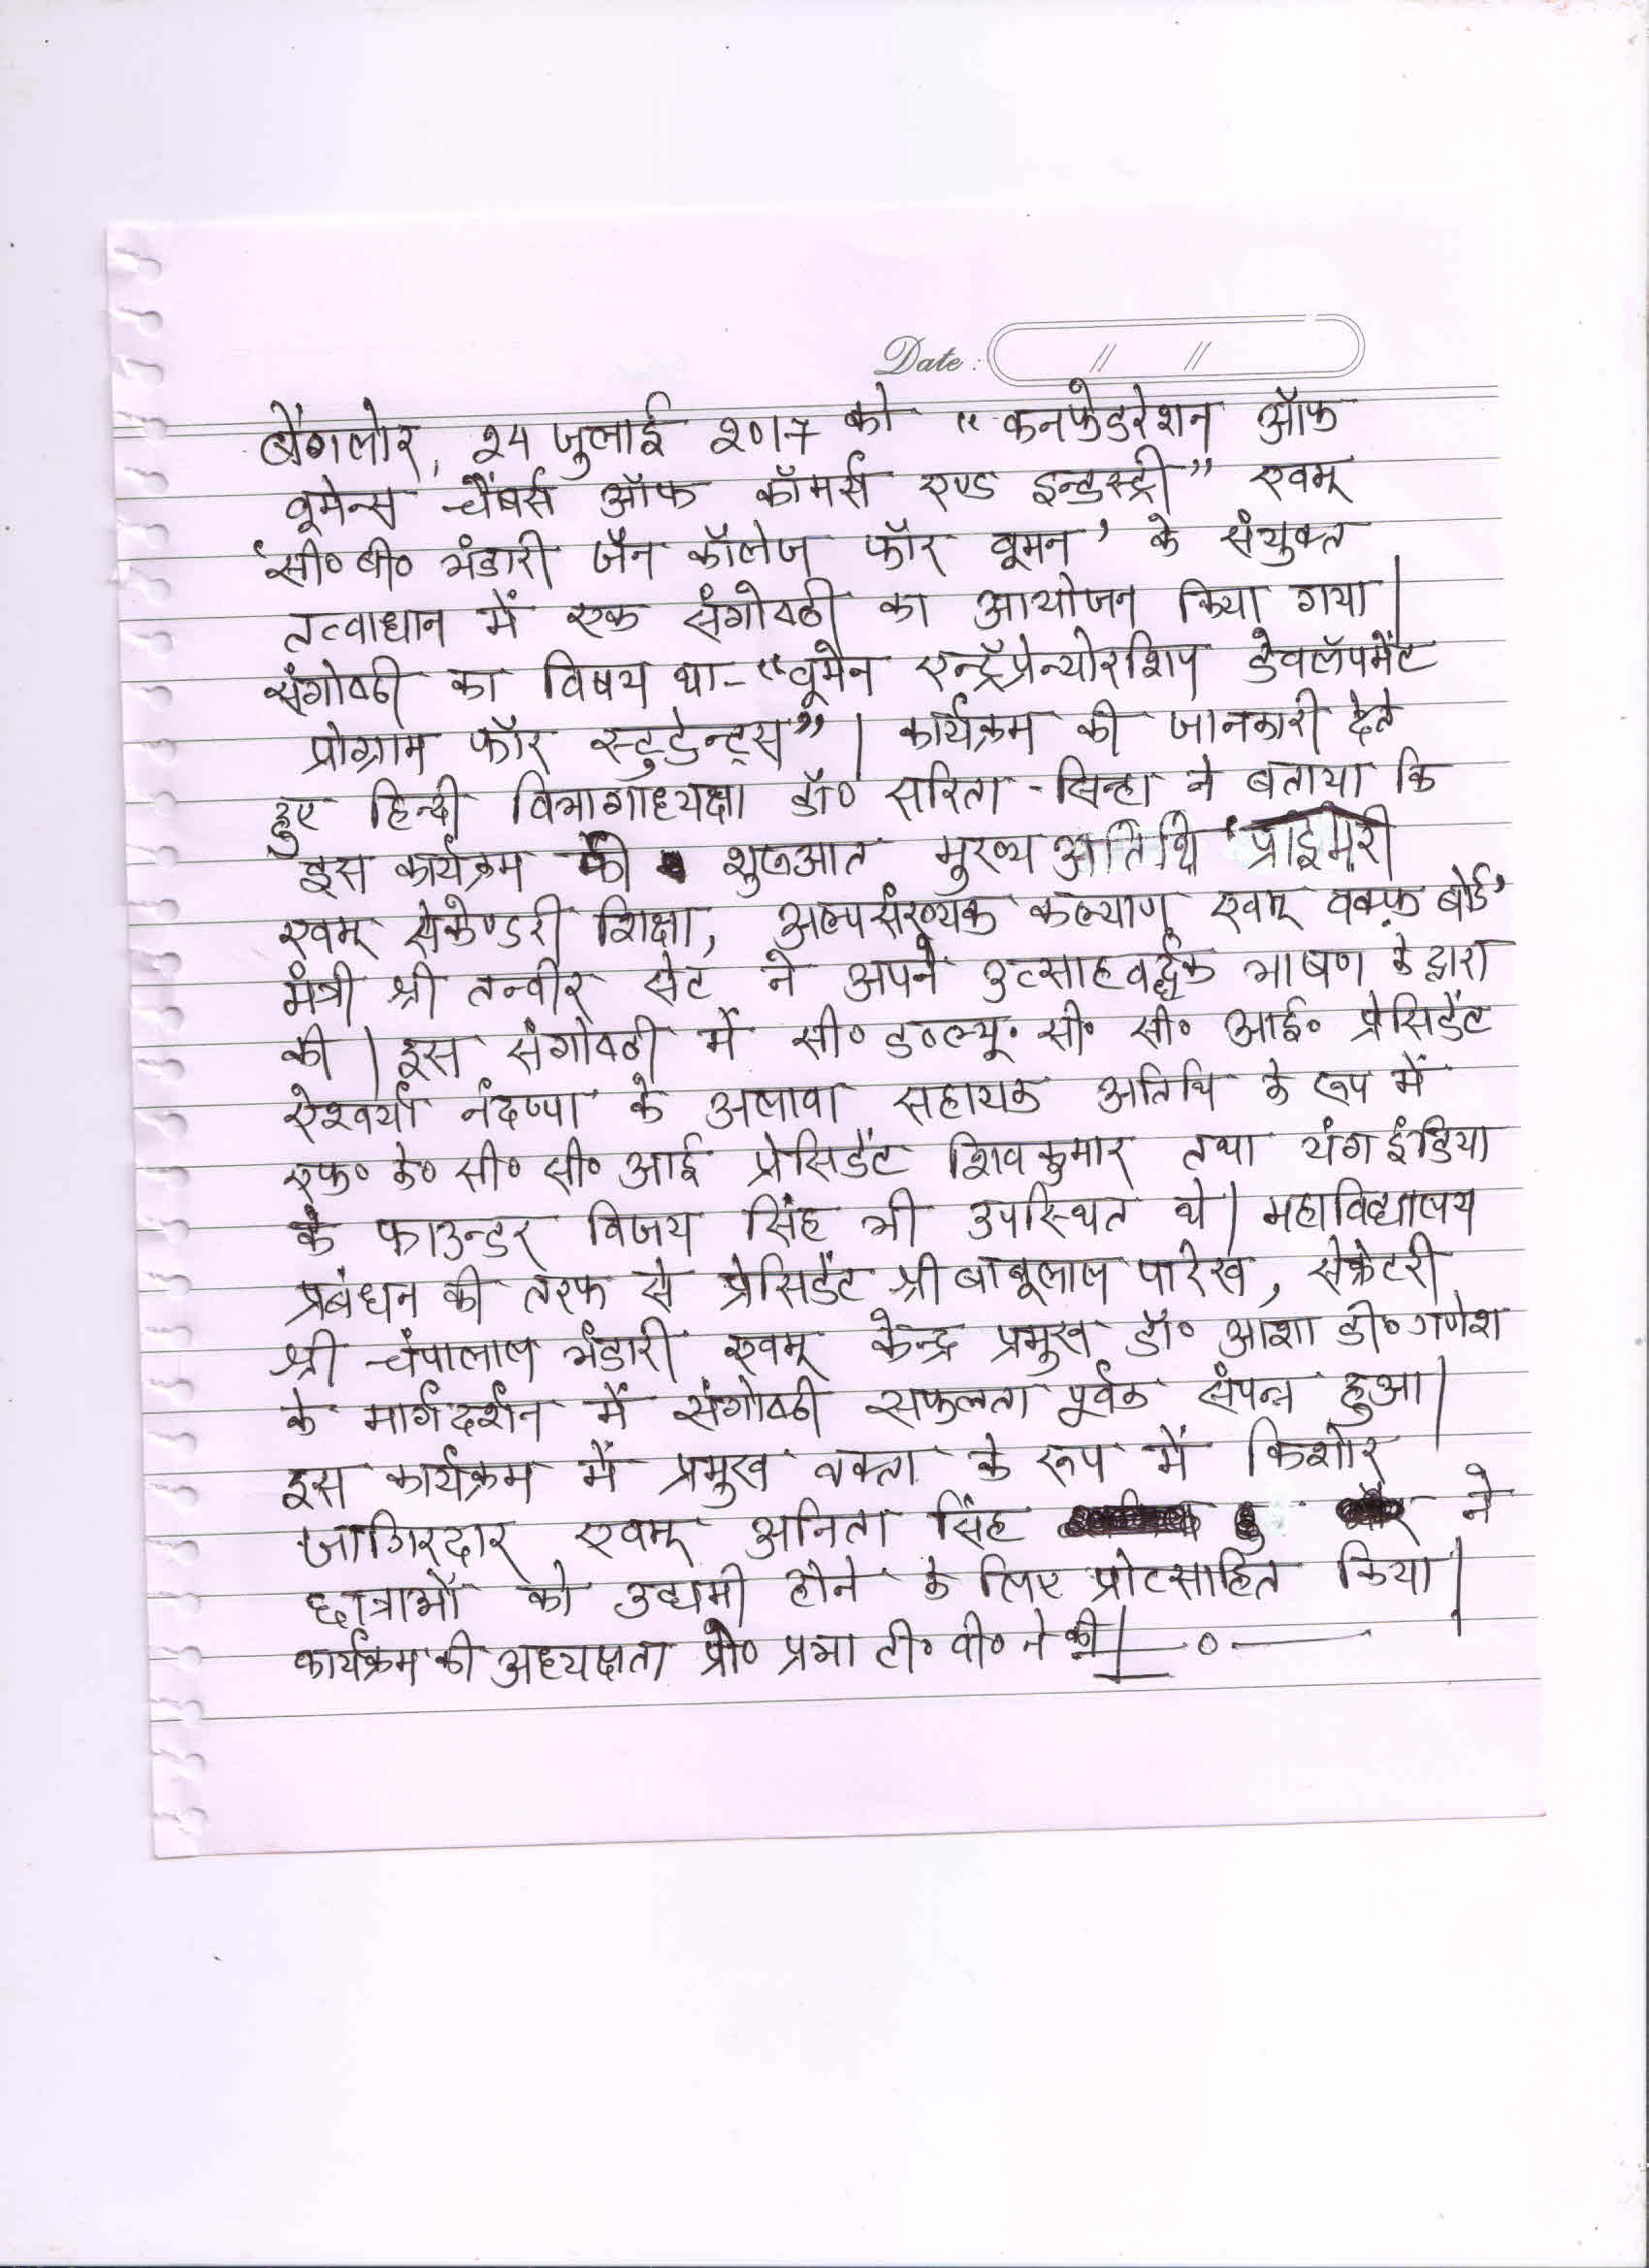 Date : // //
बैंगलोर, 24 जुलाई 2017 को "कनफेडरेशन ऑफ
वूमेन्स चैंबर्स ऑफ कॉमर्स एण्ड इन्डस्ट्री" एवम्
'सी० बी० भंडारी जैन कॉलेज फॉर वूमन' के संयुक्त
तत्वाधान में एक संगोष्ठी का आयोजन किया गया|
संगोष्ठी का विषय था- "वूमेन एन्ट्रॅप्रेन्योरशिप डेवलॅपमेंट
प्रोग्राम फॉर स्टुडेन्ट्स"| कार्यक्रम की जानकारी देते
हुए हिन्दी विभागाध्यक्षा डॉ० सरिता सिन्हा ने बताया कि
इस कार्यक्रम की शुरुआत मुख्य अतिथि 'प्राइमरी
एवम् सेकेण्डरी शिक्षा, अल्पसंख्यक कल्याण एवम् वक्फ़ बोर्ड'
मंत्री श्री तन्वीर सेट ने अपने उत्साहवर्द्धक भाषण के द्वारा
की| इस संगोष्ठी में सी० डब्ल्यू० सी० सी० आई० प्रेसिडेंट
ऐश्वर्या नंदप्पा के अलावा सहायक अतिथि के रूप में
एफ० के० सी० सी० आई प्रेसिडेंट शिवकुमार तथा यंग इंडिया
के फाउन्डर विजय सिंह भी उपस्थित थे| महाविद्यालय
प्रबंधन की तरफ से प्रेसिडेंट श्री बाबूलाल पारेख, सेक्रेटरी
श्री चंपालाल भंडारी एवम् केन्द्र प्रमुख डॉ० आशा डी० गणेश
के मार्गदर्शन में संगोष्ठी सफलता पूर्वक संपन्न हुआ|
इस कार्यक्रम में प्रमुख वक्ता के रूप में किशोर
जागिरदार एवम् अनिता सिंह ने
छात्राओं को उद्यमी होने के लिए प्रोत्साहित किया|
कार्यक्रम की अध्यक्षता प्रो० प्रभा टी० वी० ने की|—०—